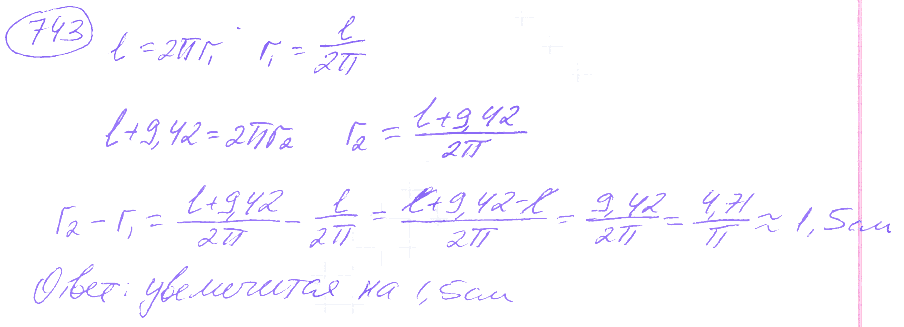 743 l = 2πr₁ r₁ = l/2π
l+9,42 = 2πr₂ r₂ = (l+9,42)/2π
r₂ − r₁ = (l+9,42)/2π − l/2π = (l+9,42−l)/2π = 9,42/2π = 4,71/π ≈ 1,5см
Ответ: увеличится на 1,5см